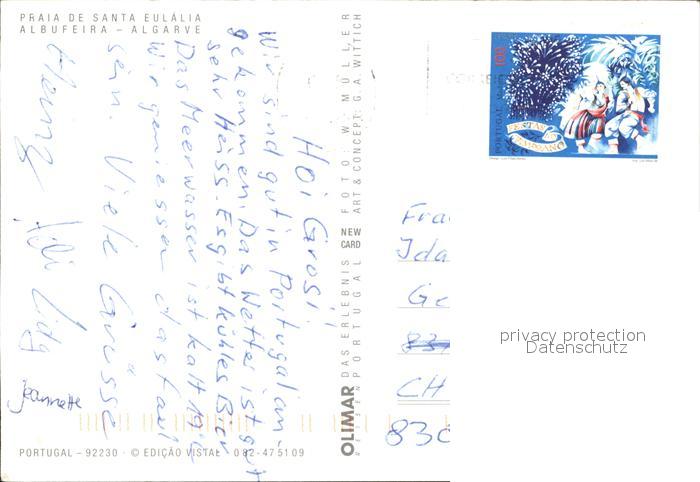 PRAIA DE SANTA EULÁLIA
ALBUFEIRA – ALGARVE
Hoi Grosi!
Wir sind gut in Portugal an-
gekommen. Das Wetter ist gut
sehr Heiss. Es gibt kühles Bier
Das Meerwasser ist kalt. Wir
Wir geniessen das faul
sein. Viele Grüsse
Heinz
Jeannette
OLIMAR
REISEN
DAS ERLEBNIS
PORTUGAL
NEW
CARD
FOTO: W. MÜLLER
ART & CONCEPT: G.A. WITTICH
PORTUGAL – 92230 - © EDIÇÃO VISTAL · 082-475109
PORTUGAL
100
Fra
Ida
Ge
83
CH
830
privacy protection
Datenschutz